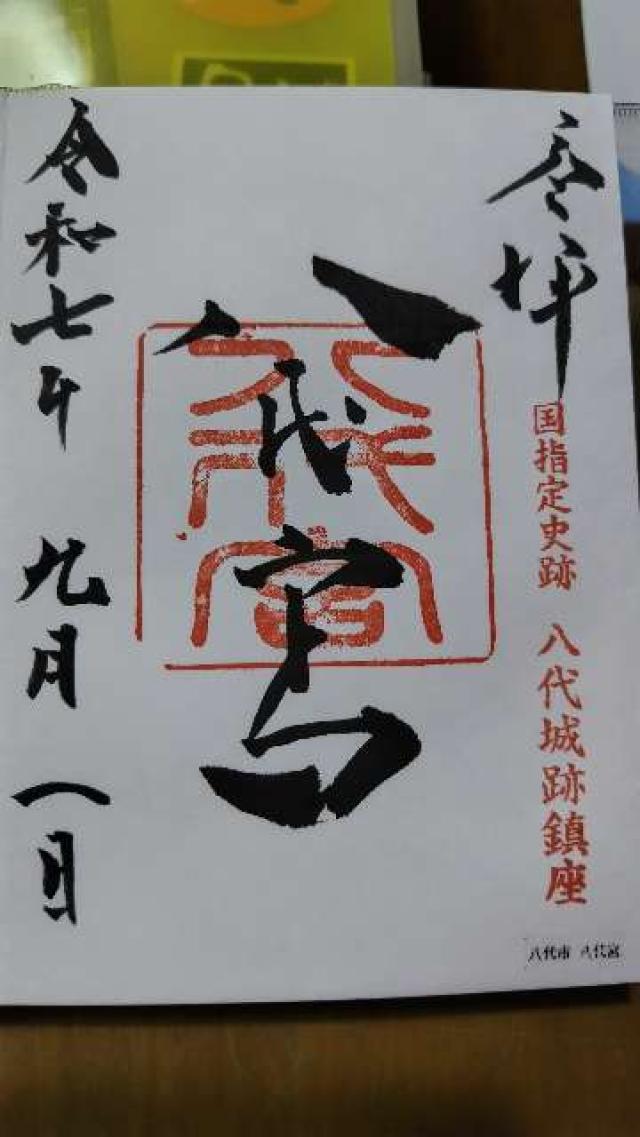 奉拝
国指定史跡 八代城跡鎮座
八代宮
八代宮
令和七年 九月一日
八代市 八代宮